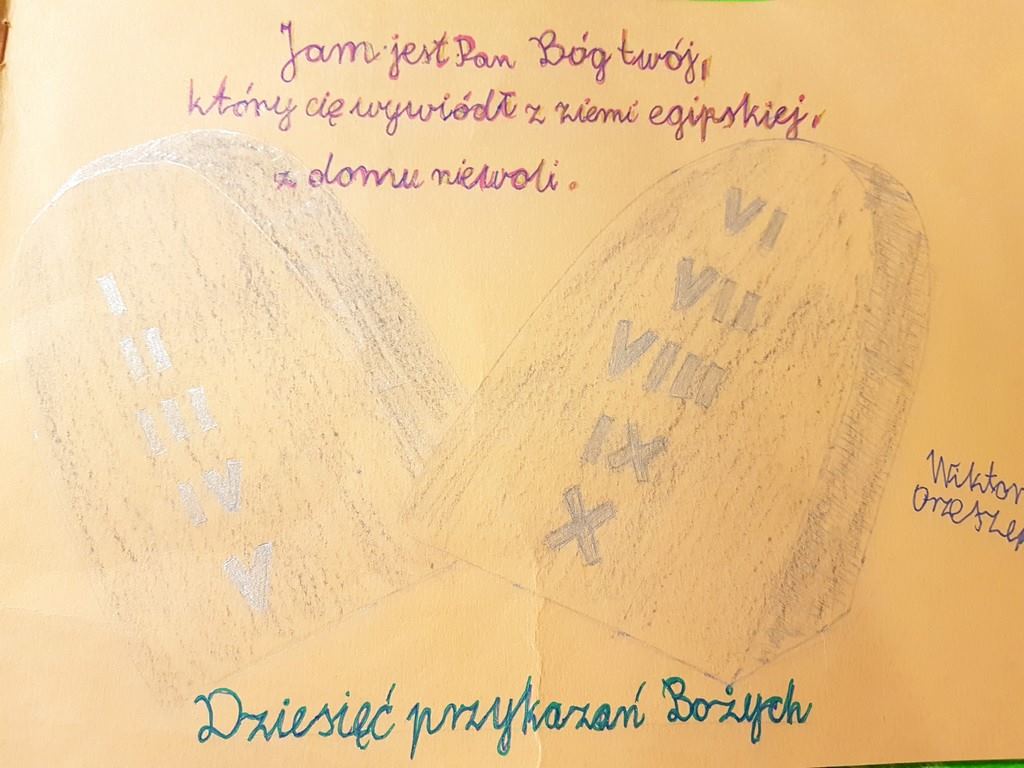 Jam jest Pan Bóg twój,
który cię wywiódł z ziemi egipskiej,
z domu niewoli.
I
II
III
IV
V
VI
VII
VIII
IX
X
Wiktor
Dziesięć przykazań Bożych